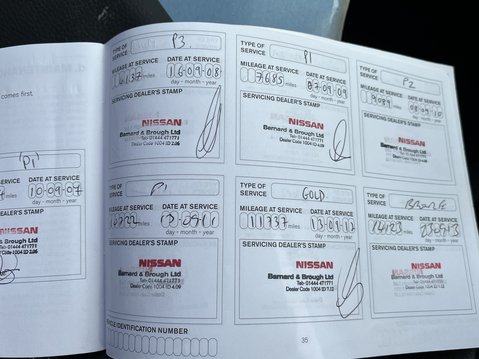 comes first.
P1
SERVICE DATE AT SERVICE
miles 10-09-07
day - month - year
DEALER'S STAMP
NISSAN
Barnard & Brough Ltd
Tel: 01444 471771
TYPE OF SERVICE P3
MILEAGE AT SERVICE DATE AT SERVICE
6137 miles 16 09 08
day - month - year
SERVICING DEALER'S STAMP
NISSAN
Barnard & Brough Ltd
Tel: 01444 471771
Dealer Code 1004
TYPE OF SERVICE P1
MILEAGE AT SERVICE DATE AT SERVICE
7685 miles 07 09 09
day - month - year
SERVICING DEALER'S STAMP
NISSAN
Barnard & Brough Ltd
Tel: 01444 471771
Dealer Code 1004
TYPE OF SERVICE P2
MILEAGE AT SERVICE DATE AT SERVICE
9089 miles 08 09 10
day - month - year
SERVICING DEALER'S STAMP
NISSAN
Barnard & Brough Ltd
Tel: 01444 471771
Dealer Code 1004
TYPE OF SERVICE P1
MILEAGE AT SERVICE DATE AT SERVICE
miles
day - month - year
SERVICING DEALER'S STAMP
NISSAN
Barnard & Brough Ltd
Tel: 01444 471771
Dealer Code 1004 ID 4.09
TYPE OF SERVICE GOLD
MILEAGE AT SERVICE DATE AT SERVICE
11737 miles 13 09 12
day - month - year
SERVICING DEALER'S STAMP
NISSAN
Barnard & Brough Ltd
Tel: 01444 471771
Dealer Code 1004 ID 7.12
TYPE OF SERVICE
MILEAGE AT SERVICE DATE AT SERVICE
miles
day - month - year
SERVICING DEALER'S STAMP
NISSAN
Barnard & Brough Ltd
Tel: 01444 471771
Dealer Code 1004 ID 7.12
IDENTIFICATION NUMBER
35